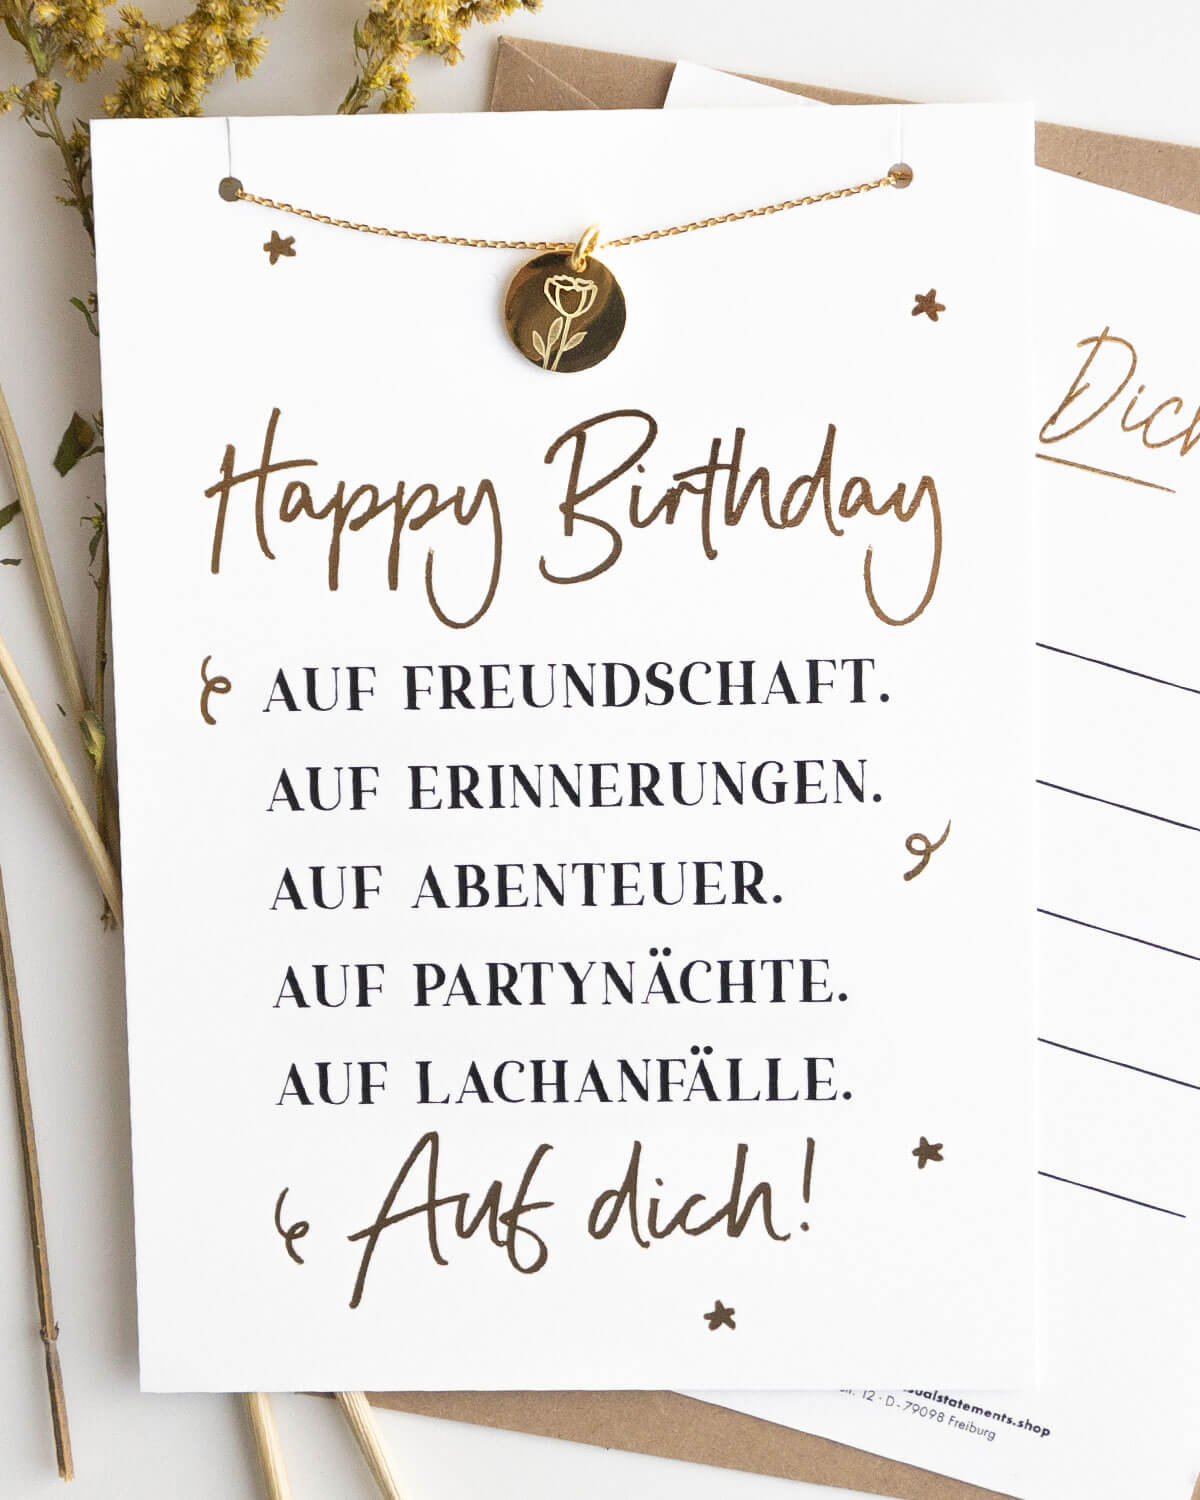 Happy Birthday
AUF FREUNDSCHAFT.
AUF ERINNERUNGEN.
AUF ABENTEUER.
AUF PARTYNÄCHTE.
AUF LACHANFÄLLE.
Auf dich!
Dich
sualstatements.shop
str. 12 · D - 79098 Freiburg